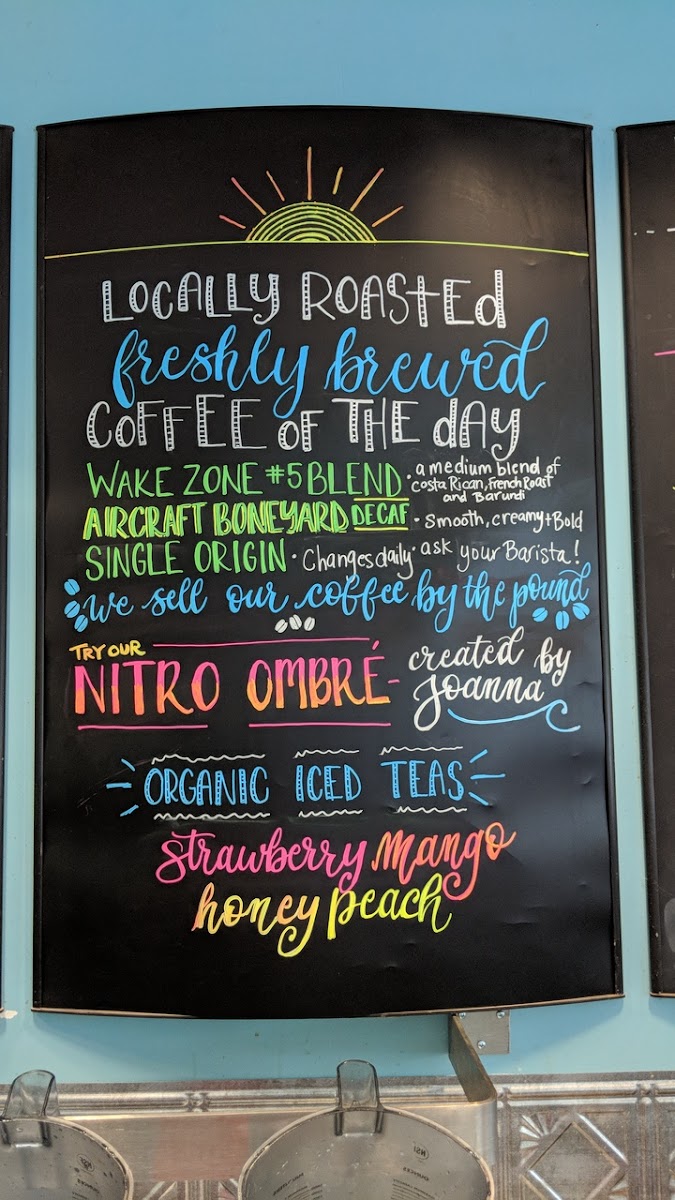 LOCALLY ROASTEd
freshly brewed
COFFEE OF THE dAY
WAKE ZONE #5 BLEND · a medium blend of
Costa Rican, French Roast
and Barundi
AIRCRAFT BONEYARD DECAF · Smooth, creamy + Bold
SINGLE ORIGIN · Changes daily · ask your Barista!
we sell our coffee by the pound
TRY OUR
NITRO OMBRÉ - created by
Joanna
ORGANIC ICED TEAS
strawberry mango
honey peach
NSF